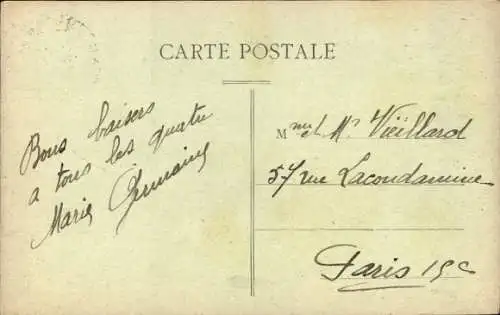 CARTE POSTALE
Bons baisers
a tous les quatre
Marie Germaine
Mme et Mr Vieillard
57 rue Lacondamine
Paris 19e